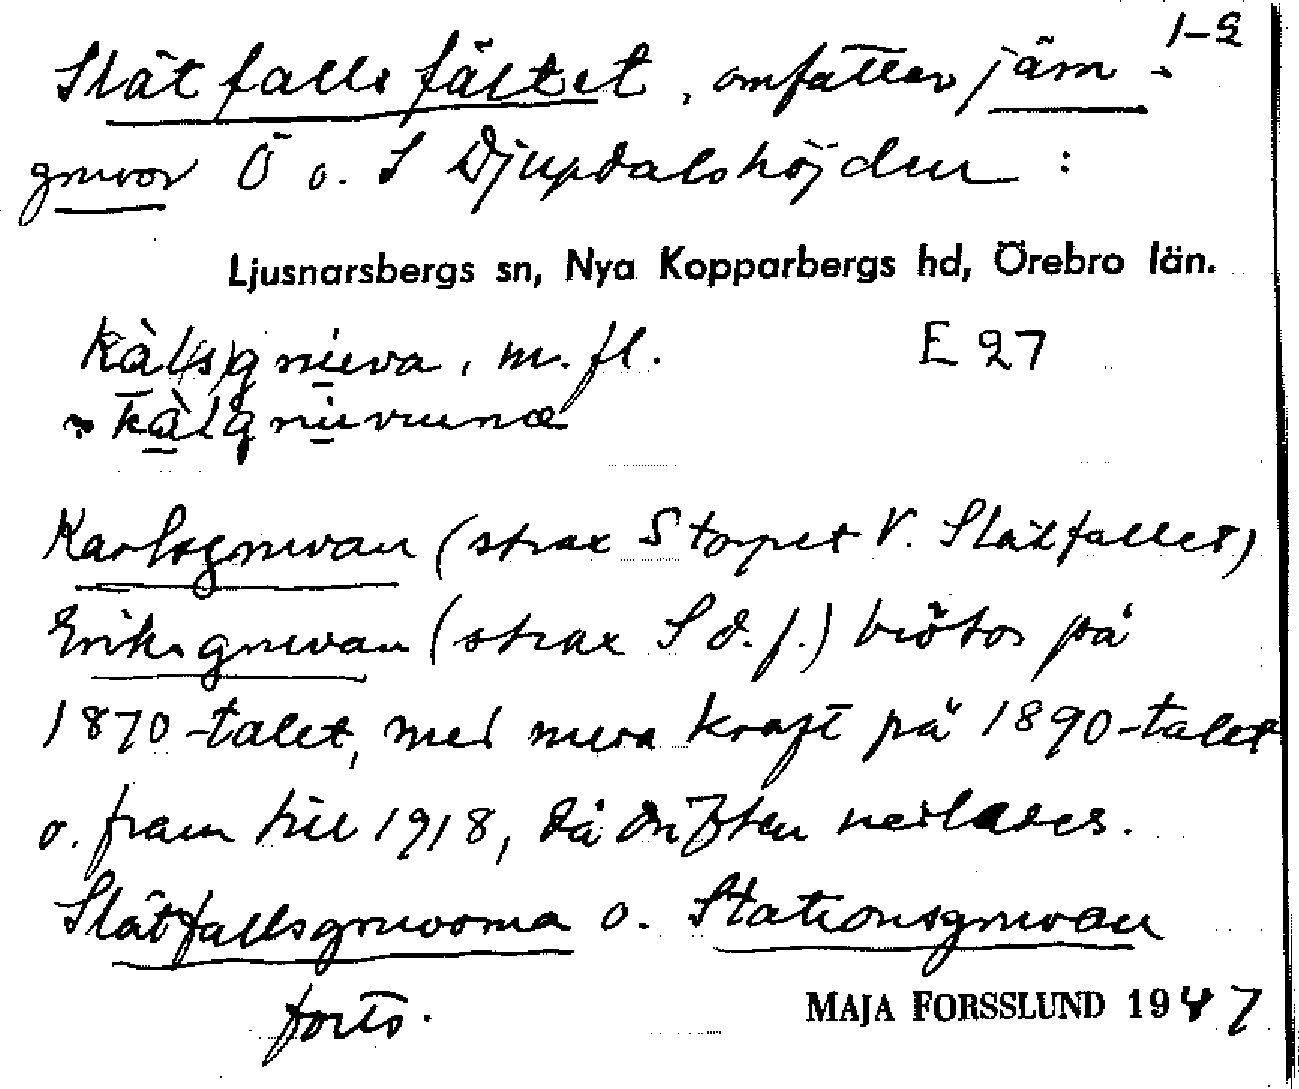 1-2
Slätfallsfältet, omfattar järn-
gruvor Ö o. S Djupdalshöjden :
Ljusnarsbergs sn, Nya Kopparbergs hd, Örebro län.
kàl(s)gruva, m. fl. E 27
Karlsgruvan (strax S torpet V. Slätfallet)
Eriksgruvan (strax S d. f.) bröts på
1870-talet, med mera kraft på 1890-talet
o. fram till 1918, då driften nedlades.
Slätfallsgruvorna o. Stationsgruvan
forts.
MAJA FORSSLUND 1947